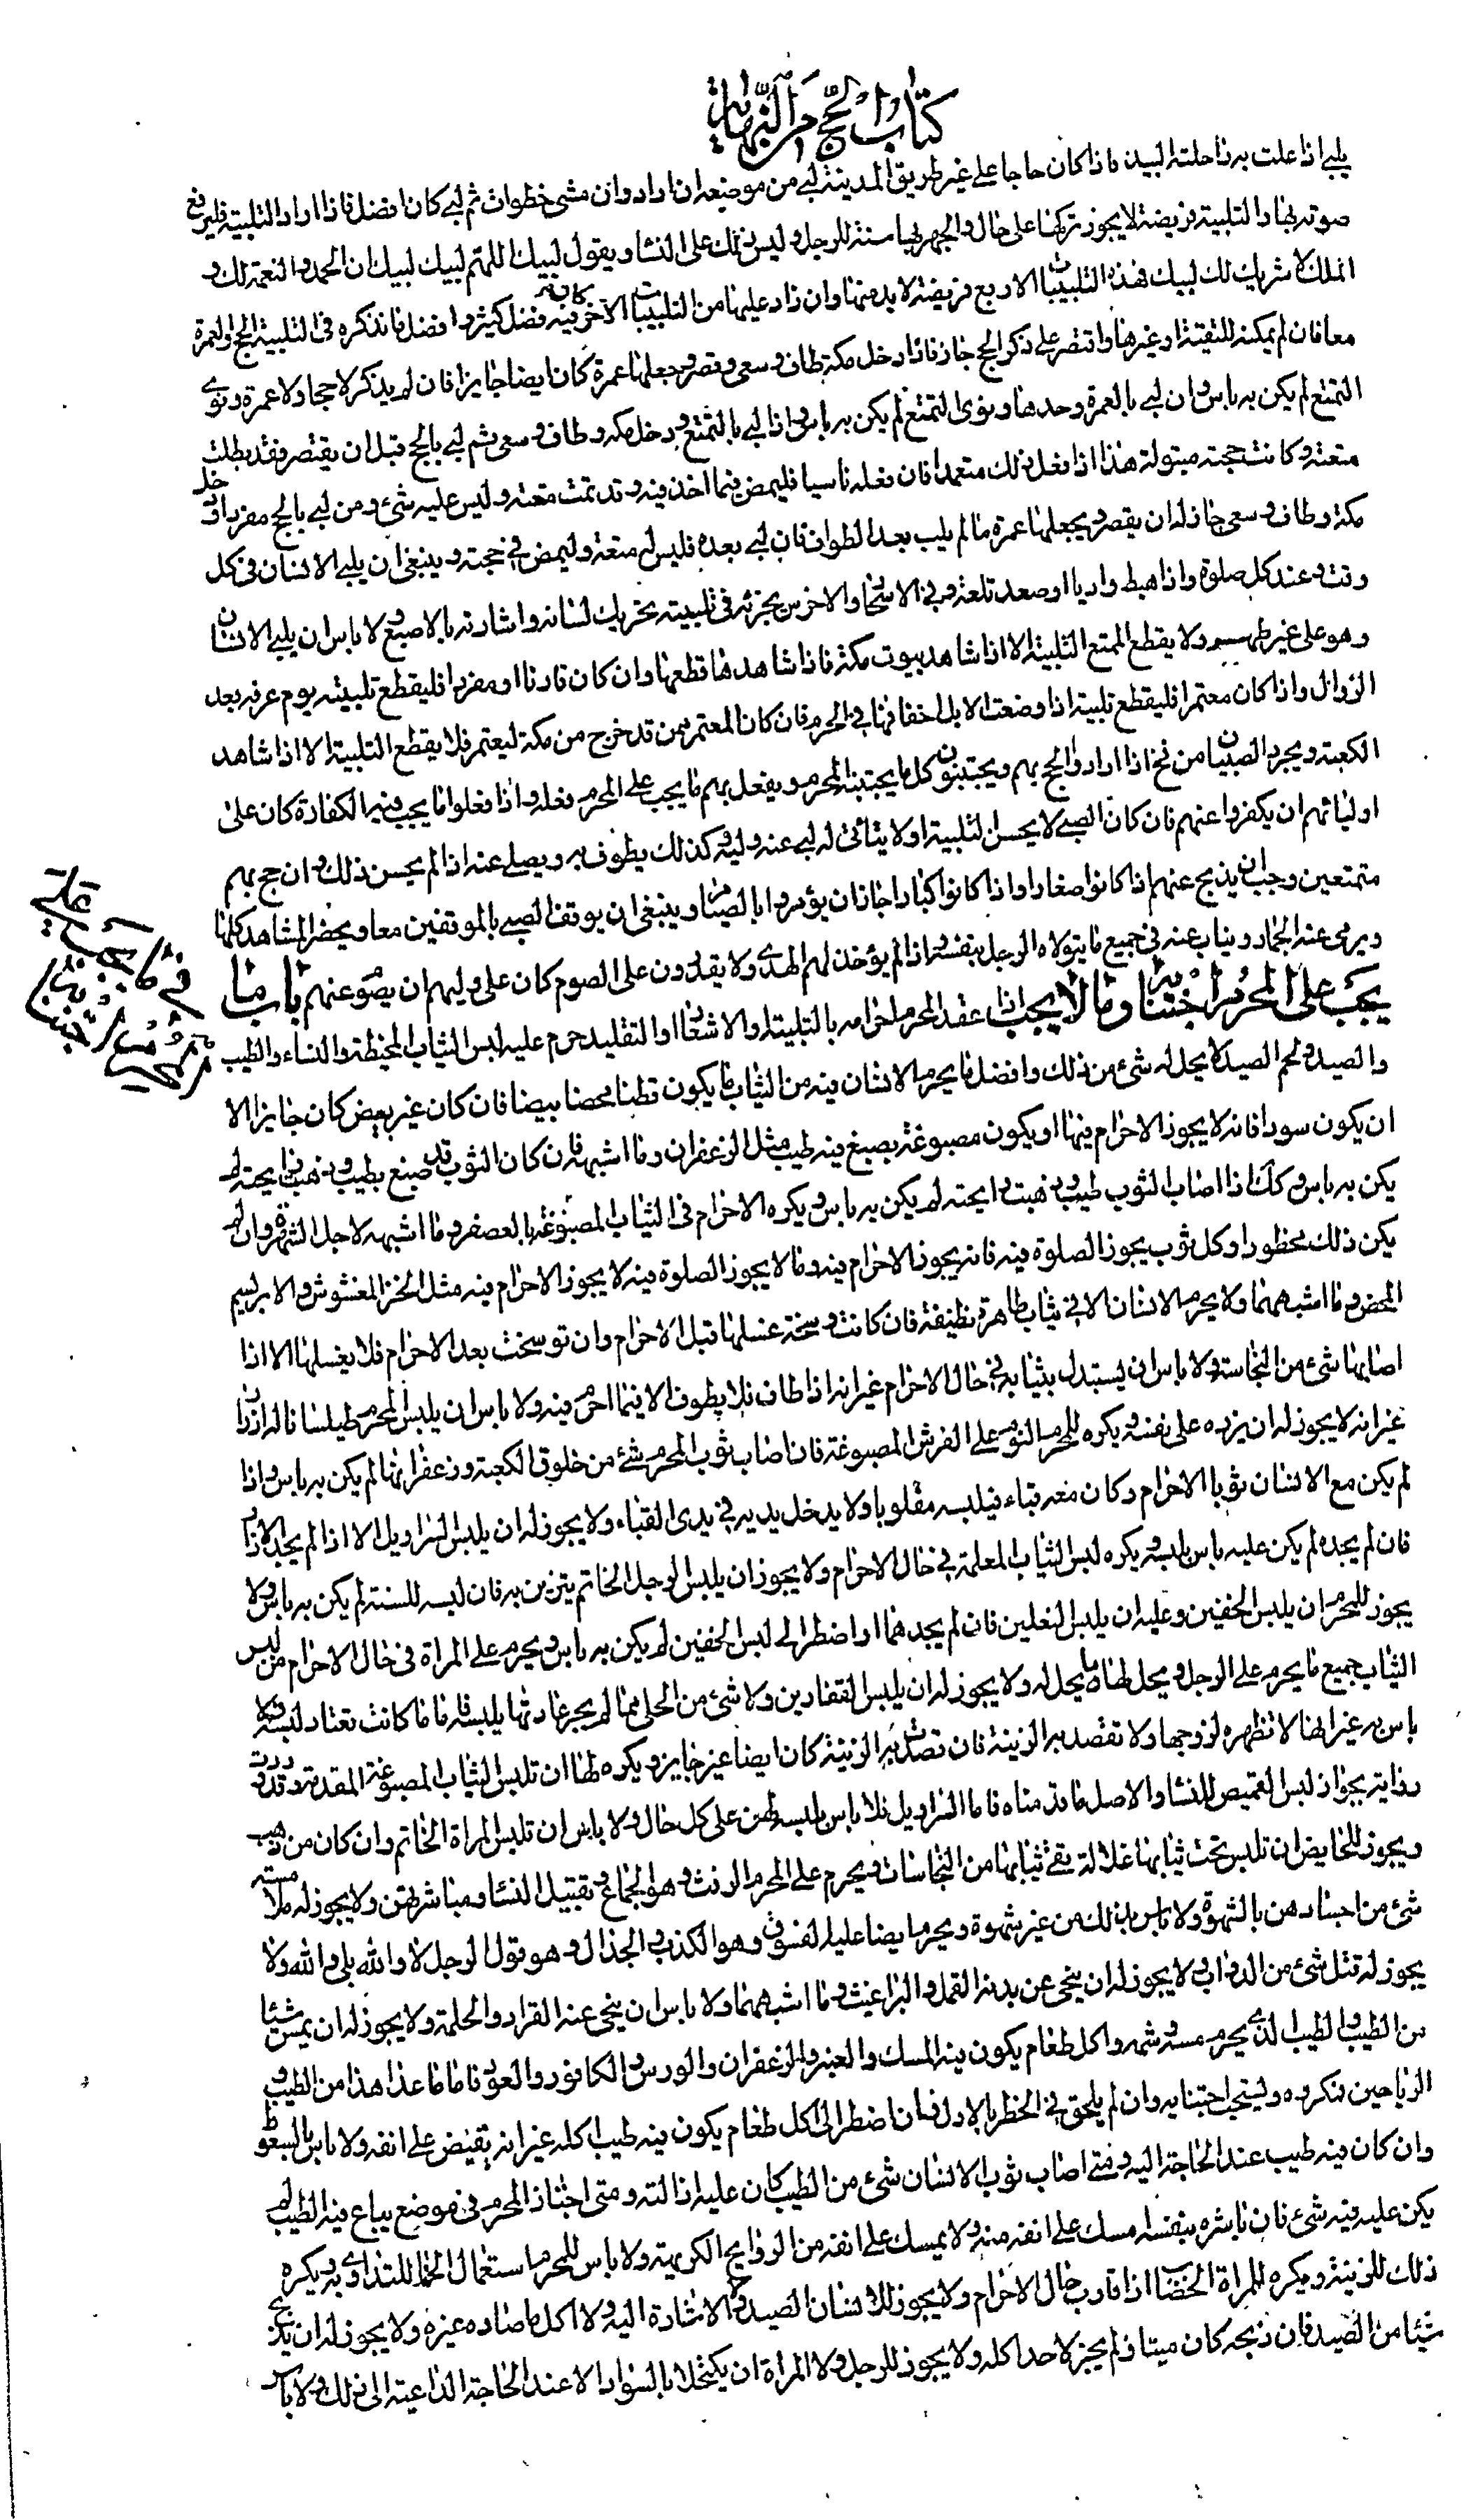 كتاب الحج من النهاية
يلبي اذا علت به راحلته البيداء فاذا كان حاجا على غير طريق المدينة لبى من موضعه ان اراد وان مشى خطوات ثم لبى كان افضل فاذا اراد التلبية فليرفع
صوته بها والتلبية فريضة لا يجوز تركها على حال والجهر بها سنة للرجل وليس ذلك على النساء ويقول لبيك اللهم لبيك لبيك ان الحمد والنعمة لك و
الملك لا شريك لك لبيك فهذه التلبيات الاربع فريضة لا بد منها وان زاد عليها من التلبيات الاخر كان فيه فضل كثير وافضل ما نذكره في التلبية الحج والعمرة
معا فان لم يمكنه للتقية او غيرها واقتصر على ذكر الحج جاز فاذا دخل مكة طاف وسعى وقصر وجعلها عمرة كان ايضا جايزا فان لم يذكر لا حجا ولا عمرة ونوى
التمتع لم يكن به باس وان لبى بالعمرة وحدها ونوى التمتع لم يكن به باس واذا لبى بالتمتع ودخل مكة وطاف وسعى ثم لبى بالحج قبل ان يقصر فقد بطلت
متعته وكانت حجته مبتولة هذا اذا فعل ذلك متعمدا فان فعله ناسيا فليمض فيما اخذ فيه وقد تمت متعته وليس عليه شئ ومن لبى بالحج مفردا ودخل
مكة وطاف وسعى جاز له ان يقصر ويجعلها عمرة ما لم يلب بعد الطواف فان لبى بعده فليس له متعة وليمض في حجته وينبغي ان يلبي الانسان في كل
وقت وعند كل صلوة واذا هبط واديا او صعد تلعة وفي الاسحار والاخرس يجزئه في تلبيته تحريك لسانه واشارته بالاصبع ولا باس ان يلبي الانسان
وهو على غير طهر ولا يقطع المتمتع التلبية الا اذا شاهد بيوت مكة فاذا شاهدها قطعها وان كان قارنا او مفردا فليقطع تلبيته يوم عرفه بعد
الزوال واذا كان معتمرا فليقطع تلبيته اذا وضعت الابل اخفافها في الحرم فان كان المعتمر ممن قد خرج من مكة ليعتمر فلا يقطع التلبية الا اذا شاهد
الكعبة ويجرد الصبيان من فخ اذا ارادوا الحج بهم ويجتنبون كل ما يجتنبه المحرم ويفعل بهم ما يجب على المحرم فعله واذا فعلوا ما يجب فيه الكفارة كان على
اوليائهم ان يكفروا عنهم فان كان الصبي لا يحسن التلبية او لا يتاتى له لبى عنه وليه وكذلك يطوف به ويصلي عنه اذا لم يحسن ذلك وان حج بهم
متمتعين وجب ان يذبح عنهم اذا كانوا صغارا واذا كانوا كبارا جاز ان يؤمروا بالصيام وينبغي ان يوقف الصبي بالموقفين معا ويحضر المشاهد كلها
ويرمى عنه الجمار ويناب عنه في جميع ما يتولاه الرجل بنفسه واذا لم يؤخذ لهم الهدي ولا يقدرون على الصوم كان على وليهم ان يصوم عنهم باب ما
يجب على المحرم اجتنابه وما لا يجب اذا عقد المحرم احرامه بالتلبية او الاشعار او التقليد حرم عليه لبس الثياب المخيطة والنساء والطيب
والصيد ولحم الصيد لا يحل له شئ من ذلك وافضل ما يحرم الانسان فيه من الثياب ما يكون قطنا محضا بيضا فان كان غير بيض كان جايزا الا
ان يكون سودا فانه لا يجوز الاحرام فيها او يكون مصبوغة بصبغ فيه طيب مثل الزعفران وما اشبهه فان كان الثوب قد صبغ بطيب وذهب رايحته لم
يكن به باس وكك اذا اصاب الثوب طيب وذهبت رايحته لم يكن به باس ويكره الاحرام في الثياب المصبوغة بالعصفر وما اشبهه لاجل الشهرة وان لم
يكن ذلك محظورا وكل ثوب يجوز الصلوة فيه فانه يجوز الاحرام فيه وما لا يجوز الصلوة فيه لا يجوز الاحرام فيه مثل الخز المغشوش والابريسم
المحض وما اشبههما ولا يحرم الانسان الا في ثياب طاهرة نظيفة فان كانت وسخة غسلها قبل الاحرام وان توسخت بعد الاحرام فلا يغسلها الا اذا
اصابها شئ من النجاسة ولا باس ان يستبدل بثيابه في حال الاحرام غير انه اذا طاف فلا يطوف الا فيما احرم فيه ولا باس ان يلبس المحرم طيلسانا له ازرار
غير انه لا يجوز له ان يزره على نفسه ويكره للمحرم النوم على الفرش المصبوغة فان اصاب ثوب المحرم شئ من خلوق الكعبة وزعفرانها لم يكن به باس واذا
لم يكن مع الانسان ثوبا الاحرام وكان معه قباء فليلبسه مقلوبا ولا يدخل يديه في يدي القباء ولا يجوز له ان يلبس السراويل الا اذا لم يجد الازار
فان لم يجده لم يكن عليه باس بلبسه ويكره لبس الثياب المعلمة في حال الاحرام ولا يجوز ان يلبس الرجل الخاتم يتزين به فان لبسه للسنة لم يكن به باس ولا
يجوز للمحرم ان يلبس الخفين وعليه ان يلبس النعلين فان لم يجدهما او اضطر الى لبس الخفين لم يكن به باس ويحرم على المراة في حال الاحرام من لبس
الثياب جميع ما يحرم على الرجل ويحل لها ما يحل له ولا يجوز له ان يلبس القفازين ولا شئ من الحلي مما لم يجر عادتها يلبسه فاما ما كانت تعتاد لبسه فلا
باس به غير انها لا تظهره لزوجها ولا تقصد به الزينة فان قصدت به الزينة كان ايضا غير جايز ويكره لها ان تلبس الثياب المصبوغة المفدمة وقد وردت
رواية بجواز لبس القميص للنساء والاصل ما قدمناه فاما السراويل فلا باس بلبسه لهن على كل حال ولا باس ان تلبس المراة الخاتم وان كان من ذهب
ويجوز للحايض ان تلبس تحت ثيابها غلالة يقي ثيابها من النجاسات ويحرم على المحرم الرفث وهو الجماع وتقبيل النساء ومباشرتهن ولا يجوز له ملامسته
شئ من اجسادهن بالشهوة ولا باس بذلك من غير شهوة ويحرم ايضا عليه الفسوق وهو الكذب والجدال وهو قول الرجل لا والله بلى والله ولا
يجوز له قتل شئ من الدواب ولا يجوز له ان ينحي عن بدنه القمل والبراغيث وما اشبههما ولا باس ان ينحي عنه القراد والحلمة ولا يجوز له ان يمس شيئا
من الطيب والطيب الذي يحرم مسه وشمه واكل طعام يكون فيه المسك والعنبر والزعفران والورس والكافور والعود فاما ما عدا هذا من الطيب و
الرياحين فمكروه ويستحب اجتنابه وان لم يلحق في الحظر بالاول فان اضطر الى اكل طعام يكون فيه طيب اكله غير انه يقبض على انفه ولا باس بالسعوط
وان كان فيه طيب عند الحاجة اليه ومتى اصاب ثوب الانسان شئ من الطيب كان عليه ازالته ومتى اجتاز المحرم في موضع يباع فيه الطيب لم
يكن عليه فيه شئ فان باشره بنفسه امسك على انفه منه ولا يمسك على انفه من الروايح الكريهة ولا باس للمحرم استعمال الحنا للتداوي به ويكره
ذلك للزينة ويكره للمراة الخضاب اذا قارب حال الاحرام ولا يجوز للانسان الصيد ولا الاشارة اليه ولا اكل ما صاده غيره ولا يجوز له ان يذبح
شيئا من الصيد فان ذبحه كان ميتا ولم يجز لاحد اكله ولا يجوز للرجل ولا المراة ان يكتحلا بالسواد الا عند الحاجة الداعية الى ذلك ولا باس